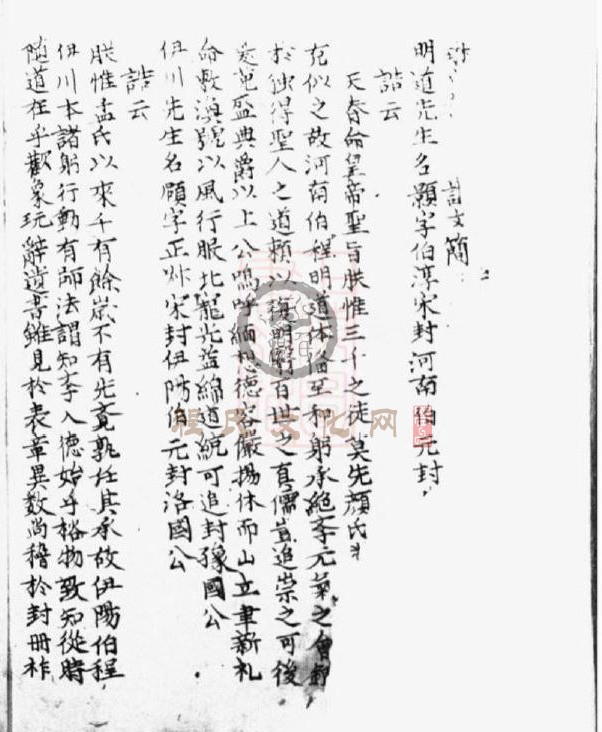 誥文簡
明道先生名顥字伯淳宋封河南伯元封
誥云
天眷命皇帝聖旨朕惟三千之徒莫先顏氏
克似之故河南伯程明道体俻至和躬承絶李元氣之會
於独得聖人之道頼以復明斯百世之真儒豈追崇之可後
爰𮕵盛典爵以上公嗚呼緬想德容儼揚休而山立聿新礼
命敷渙號以風行服此寵光益綿道統可追封豫國公
伊川先生名頤字正叔宋封伊陽伯元封洛國公
誥云
朕惟孟氏以來千有餘嵗不有先竟孰任其承故伊陽伯程
伊川本諸躬行動有師法謂知李入德始乎格物致知從時
随道在乎觀象玩辭遺書雖見於表章異数尚稽於封冊祚
程氏文化网